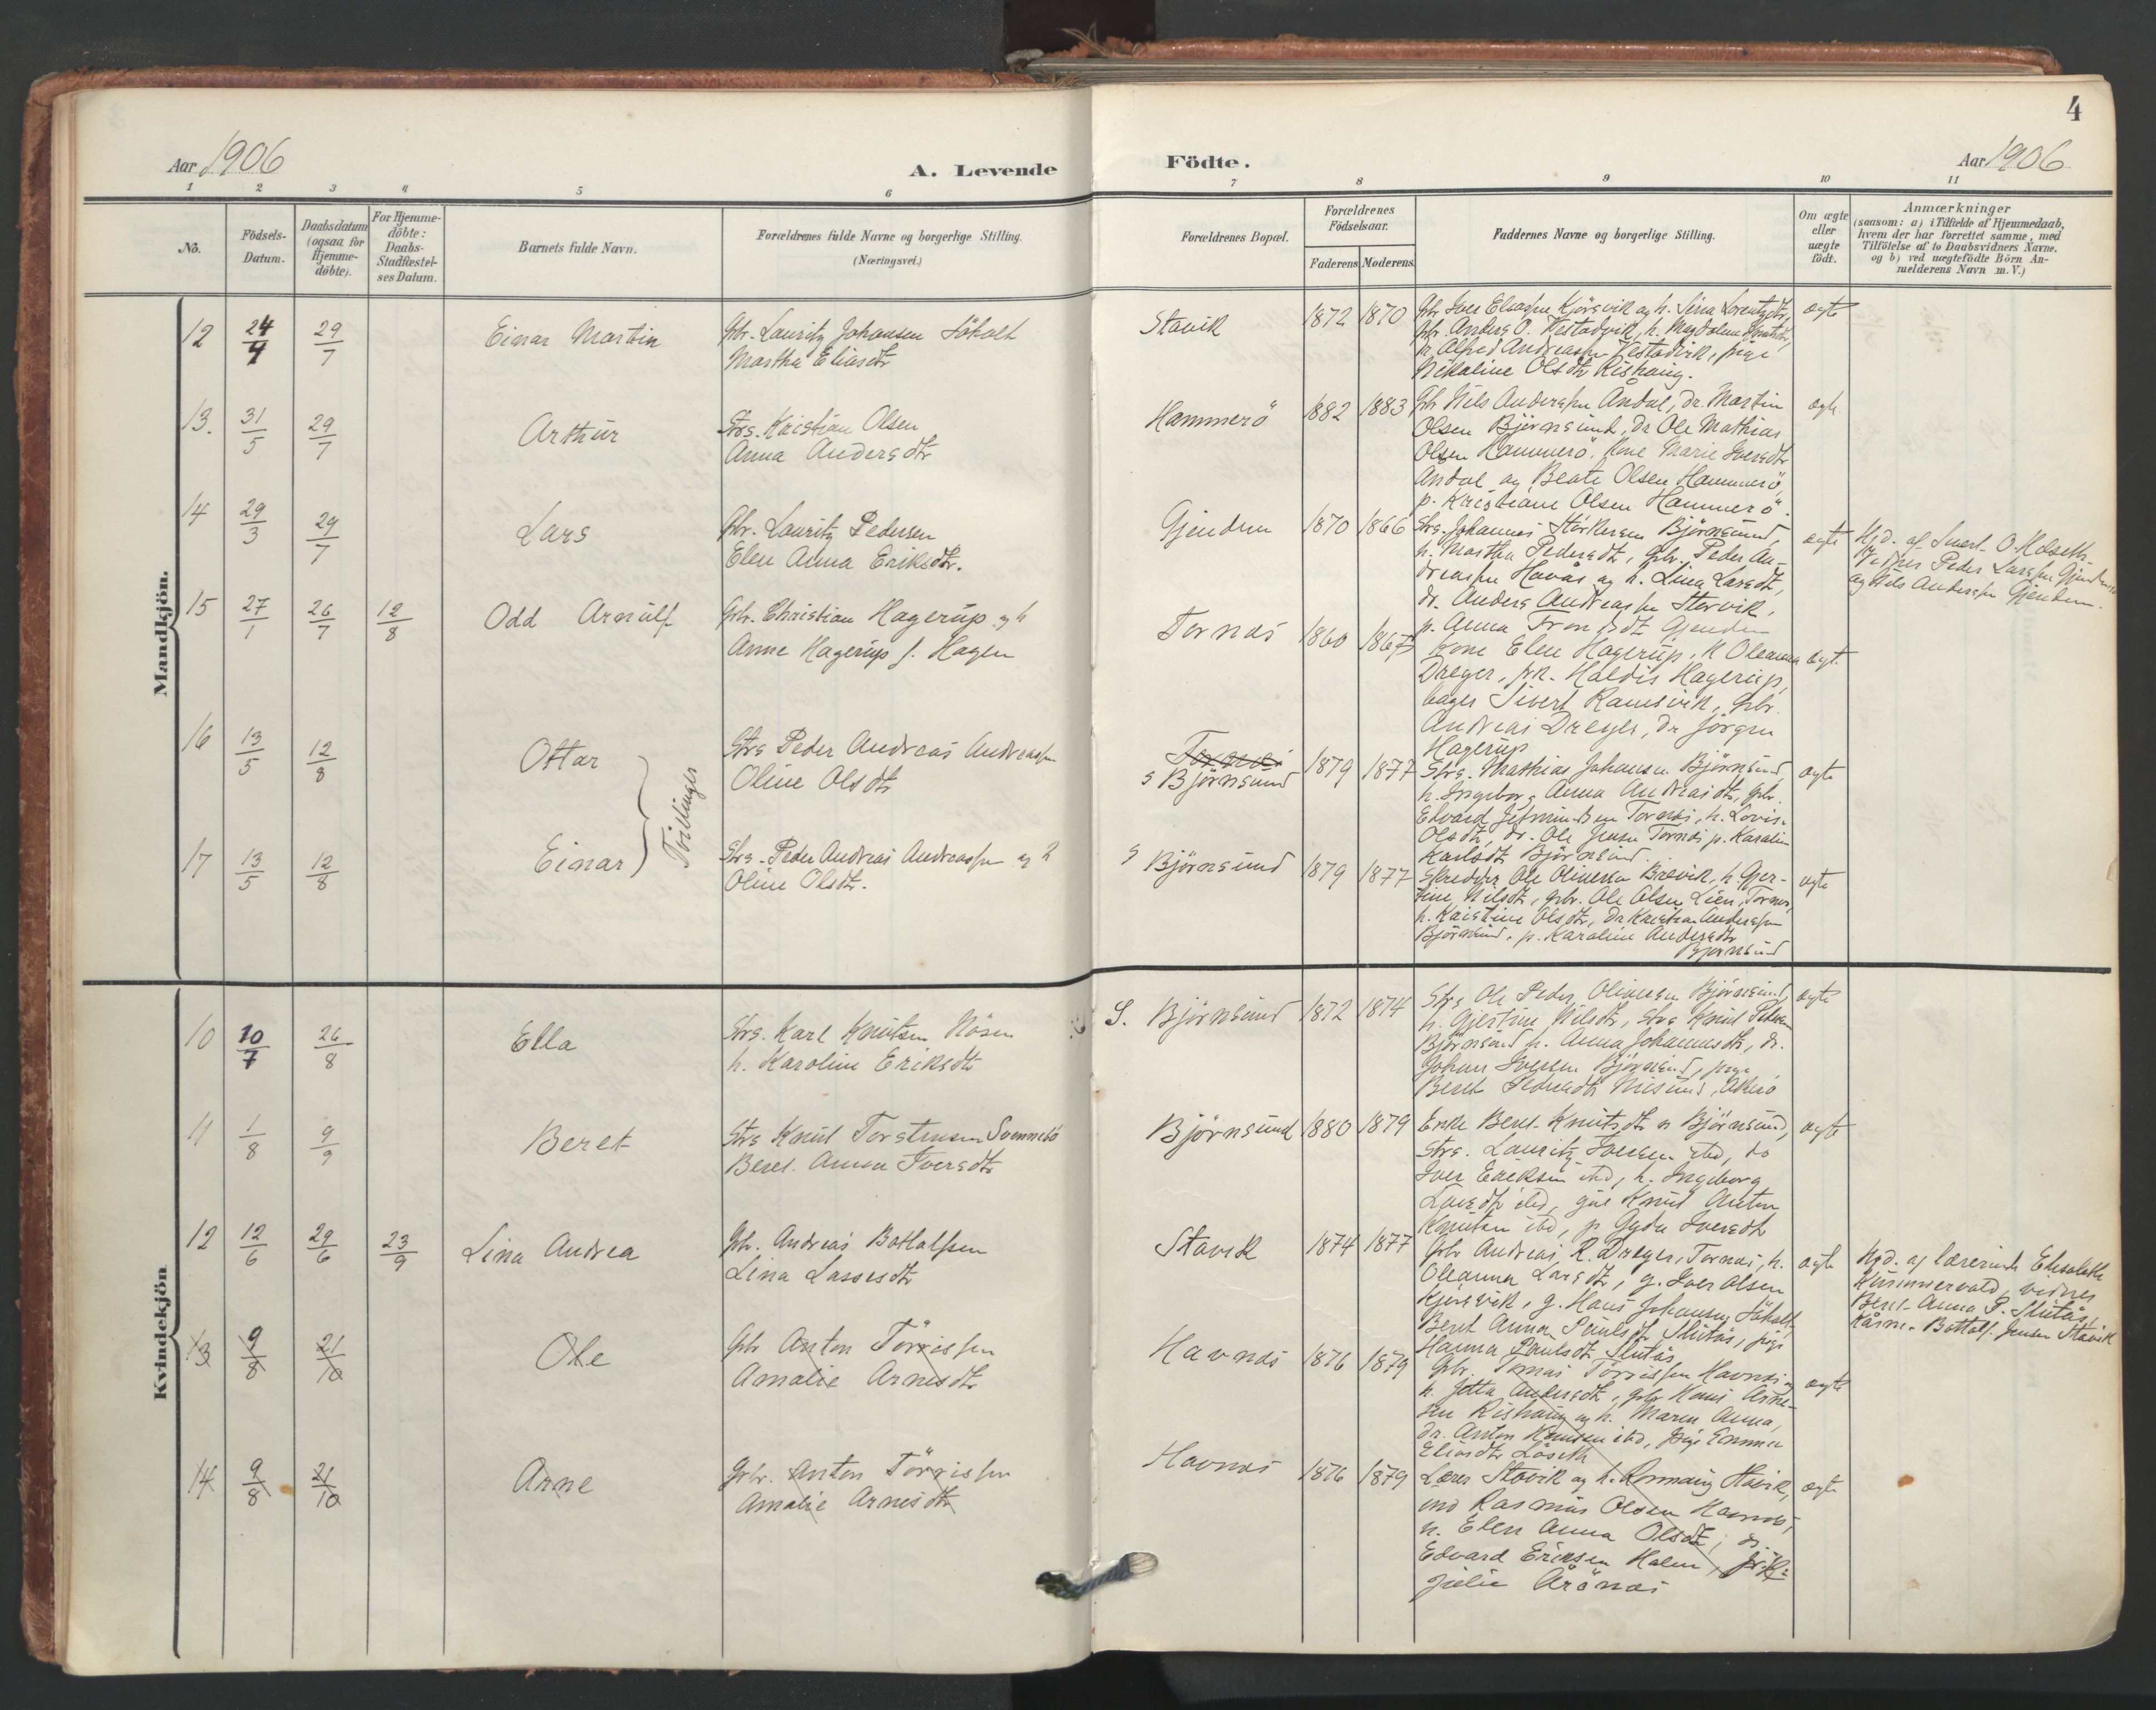 4
Aar 1906
A. Levende
Födte.
Aar 1906
1 2 3 4 5 6 7 8 9 10 11
No.
Födsels-
Datum.
Daabsdatum
(ogsaa for
Hjemme-
döbte).
For Hjemme-
döbte:
Daabs-
Stadfæstel-
ses Datum.
Barnets fulde Navn.
Forældrenes fulde Navne og borgerlige Stilling.
(Næringsvei.)
Forældrenes Bopæl.
Forældrenes
Födselsaar.
Faderens. Moderens.
Faddernes Navne og borgerlige Stilling.
Om ægte
eller
uægte
födt.
Anmærkninger
(saasom: a) i Tilfælde af Hjemmedaab,
hvem der har forrettet samme, med
Tilföielse af to Daabsvidners Navne.
og b) ved uægtefödte Börn An-
melderens Navn m.V.)
Mandkjön.
12 24/4 29/7 Einar Martin
Gbr. Lauritz Johansen Sökalt
Martha Eliasdtr
Stavik 1872 1870
Gbr Iver Eliassen Kjörsvik og h. Sina Lorentzdtr,
Gbr. Anders O. Vestadvik, h. Magdalene Knutsdtr,
Alfred Andreassen Vestadvik, pige
Nikoline Olsdtr Rishaug.
ægte
13. 31/5 29/7 Arthur
Strs. Kristian Olsen
Anna Andersdtr
Hammerö 1882 1883
Gbr Nils Anderssen Andal, dr. Martin
Olsen Björnsund, dr Ole Mathias
Olsen Hammerö, Kone Marie Iversdtr
Andal og Beate Olsen Hammerö,
p. Kristiane Olsen Hammerö.
ægte
14 29/3 29/7 Lars
Gbr. Lauritz Pedersen
Elen Anna Eriksdtr.
Gjendem 1870 1866
Strs. Johannes Störkersen Björnsund,
h. Martha Pedersdt, gbr. Peder An-
dreassen Havås og h. Lina Larsdt,
dr. Anders Andreassen Stervik,
p. Anna Trondsdt Gjendem
ægte
Hjd. af Smed O. Melseth
Vidner Peder Larssen Gjendem
og Nils Anderssen Gjendem.
15 27/1 26/7 12/8 Odd Arnulf
Gbr. Christian Hagerup og h
Anne Hagerup f. Hagen
Tornæs 1860 1867
Kone Elen Hagerup, K Oleanna
Dreyer, frk. Haldis Hagerup,
bager Sivert Ramsvik, gbr.
Andreas Dreyer, dr Jörgen
Hagerup
ægte
16 13/5 12/8 Ottar
Strs Peder Andreas Andreassen
Oline Olsdtr
Tornæs
s Björnsund 1879 1877
Strs. Mathias Johansen Björnsund,
h. Ingeborg Anna Andreasdtr, gbr.
Edvard Jetmundsen Tornæs, h. Lovise
Olsdtr, dr. Ole Jensen Tornæs p. Karoline
Karlsdtr Björnsund.
ægte
Tvillinger
17 13/5 12/8 Einar
Strs. Peder Andreas Andreassen og h
Oline Olsdtr.
s Björnsund 1879 1877
Skredder Ole Olivessen Brevik, h. Gjer-
tine Nilsdtr, gbr. Ole Olsen Lien, Tornes,
h. Kristine Olsdtr, dr Kristian Anderssen
Björnsund, p. Karoline Andersdtr
Björnsund
ægte
Kvindekjön
10 10/7 26/8 Ella
Strs. Karl Knutsen Nösen
h. Karoline Eriksdtr
S. Björnsund 1872 1874
Strs Ole Peder Olivessen Björnsund,
h. Gjertine Nilsdtr, Strs Knut Pedersen
Björnsund h. Anna Johannesdtr, dr.
Johan Iversen Björnsund, pige
Beret Pedersdtr Misund, Akerö
ægte
11 1/8 9/9 Beret
Strs Knut Torstensen Svennebö
Beret Anna Iversdtr
Björnsund 1880 1879
Enke Beret Knutsdtr s Björnsund,
Strs. Lauritz Iversen ibd, do
Iver Eriksen ibd, h. Ingeborg
Larsdtr ibd, gut Knut Anton
Knutsen ibd, p Gyda Iversdtr
ægte
12 12/6 29/6 23/9 Lina Andrea
Gbr. Andreas Bottolfsen
Lina Lassesdtr
Stavik 1874 1877
Gbr Andreas R. Dreyer, Tornæs, h.
Oleanna Larsdtr, g. Iver Olsen
Kjörsvik, g. Hans Johansen Sökalt,
Beret Anna Paulsdt Slutås, pige
Hanna Paulsdtr Slutås
ægte
Hjd. af lærerinde Elisabeth
Kummervold, vidner
Beret Anna P. Slutås,
Kårm. Bottolf Jensen Stavik
13 9/8 21/10 Ole
Gbr Anton Törrissen
Amalie Arnesdtr
Havnæs 1876 1879
Gbr. Tomas Törrissen Havnæs og
h. Jetta Andersdt, gbr Hans Arne-
sen Rishaug og h. Maren Anna,
dr. Anton Knutsen ibd, pige Emma
Eliasdtr Löseth
ægte
14 9/8 21/10 Arne
Gbr. Anton Törrissen
Amalie Arnesdtr
Havnæs 1876 1879
Lærer Stavik og h. Stavik,
Rasmus Olsen Havnæs,
h. Elen Anna Olsdt, dr.
Edvard Eriksen Malen, frk.
Julie Årönæs
ægte